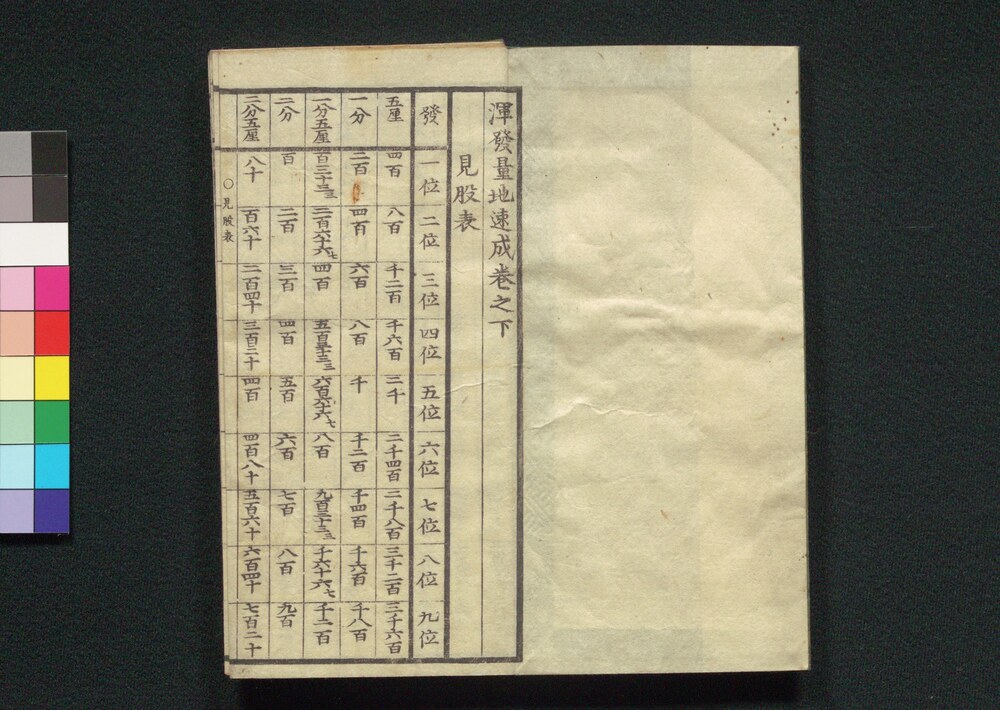 渾發量地速成卷之下
見股表
發 一位 二位 三位 四位 五位 六位 七位 八位 九位
五厘 四百 八百 千二百 千六百 二千 二千四百 二千八百 三千二百 三千六百
一分 二百 四百 六百 八百 千 千二百 千四百 千六百 千八百
一分五厘 百三十三三 二百六十六七 四百 五百三十三三 六百六十六七 八百 九百三十三三 千六十六七 千二百
二分 百 二百 三百 四百 五百 六百 七百 八百 九百
二分五厘 八十 百六十 二百四十 三百二十 四百 四百八十 五百六十 六百四十 七百二十
○見股表